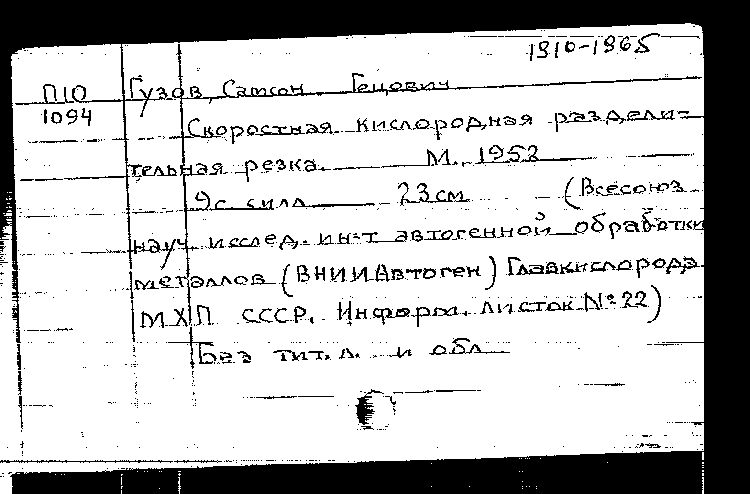 1910-1965
П10 Гузов, Самсон Гецович
1094
Скоростная кислородная раздели-
тельная резка. М., 1952
9с. с илл. 23 см (Всесоюз.
науч. исслед. ин-т автогенной обработки
металлов (ВНИИАвтоген) Главкислорода
МХП СССР. Информ. листок № 22)
Без тит. л. и обл.